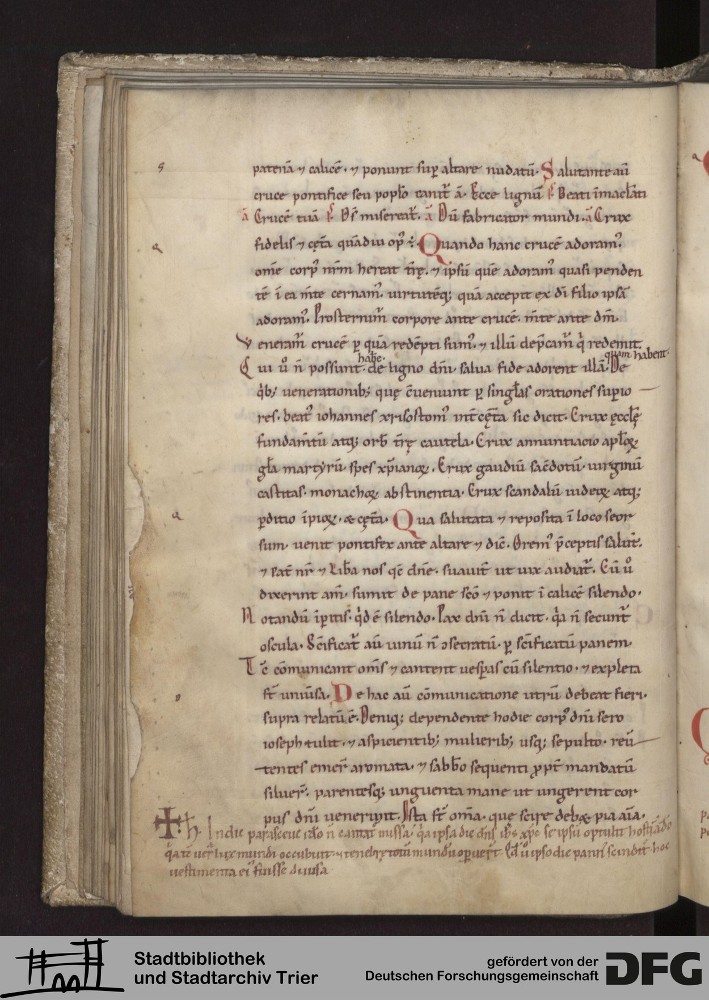 patenā ⁊ calicē. ⁊ ponunt sup altare nudatū. Salutante aū
cruce pontifice seu poplo canit̄ ā. Ecce lignū. Beati īmaclati
ā Crucē tuā. Ds misereat̄. ā Dū fabricator mundi. ā Crux
fidelis ⁊ cęta quādiu op Quando hanc crucē adoram
om̄e corp nr̄m hereat tr̄ę. ⁊ ipsū quē adoram quasi penden
tē ī ea m̄te cernam. virtutēq; quā accepit ex dī filio ipsā
adoram. Prosternim̄ corpore ante crucē. m̄te ante dm̄.
veneram̄ crucē p quā redēpti sum. ⁊ illū dep̄cam̄ q redemit.
Qui ū n̄ possunt habē. de ligno dn̄i salua fide adorent illā. quam habent. De
qb; venerationib; quę c̄ueniunt p singlas orationes supio
res. beat iohannes xrisostom int̄ cęta sic dicit. Crux ęcclę
fundam̄tū atq; orb tr̄ę cautela. Crux annuntiacio aploꝝ.
gla martyrū. spes xpianoꝝ. Crux gaudiū sac̄dotū. uirginū
castitas. monachoꝝ abstinentia. Crux scandalū iudeoꝝ atq;
pditio īpioꝝ. & cęta. Qua salutata ⁊ reposita ī loco seor
sum. uenit pontifex ante altare ⁊ dic̄. Orem p̄ceptis salut̄.
⁊ pat̄ nr̄ ⁊ Liba nos qs̄ dn̄e. suauit̄ ut uix audiat̄. Cū ū
dixerint am̄. sumit de pane sc̄o ⁊ ponit ī calicē silendo.
Notandū īpitis. qd ē silendo. Pax dn̄i n̄ dicit. qa n̄ secunt̄
oscula. Sc̄ificat̄ aū uinū n̄ c̄secratū. p sc̄ificatū panem.
Tc̄ cōmunicant om̄s ⁊ cantent uespas cū silentio. ⁊ expleta
st̄ uniūsa. De hac aū cōmunicatione utrū debeat fieri.
supra relatū ē. Deniq; dependente hodie corp dn̄i sero
ioseph tulit. ⁊ aspicientib; mulierib; usq; sepulto. reū
tentes emer̄ aromata. ⁊ sabb̄o sequenti ppt̄ mandatū
siluer̄. parentesq; unguenta mane ut ungerent cor
pus dn̄i venerunt. Ista st̄ om̄a. que scire debeꝫ pia aīa.
In die parasceue ideo n̄ cantat̄ missa. qa ipsa die dn̄s ihs xpc se ipsū optulit hostiā dō
qa tc̄ ueꝛ lux mundi occubuit. ⁊ tenebrę totū mundū opuer̄t. Qd ū ipso die panni scindit̄ hoc
uestimenta ei fuisse diuisa
Stadtbibliothek
und Stadtarchiv Trier
gefördert von der
Deutschen Forschungsgemeinschaft
DFG